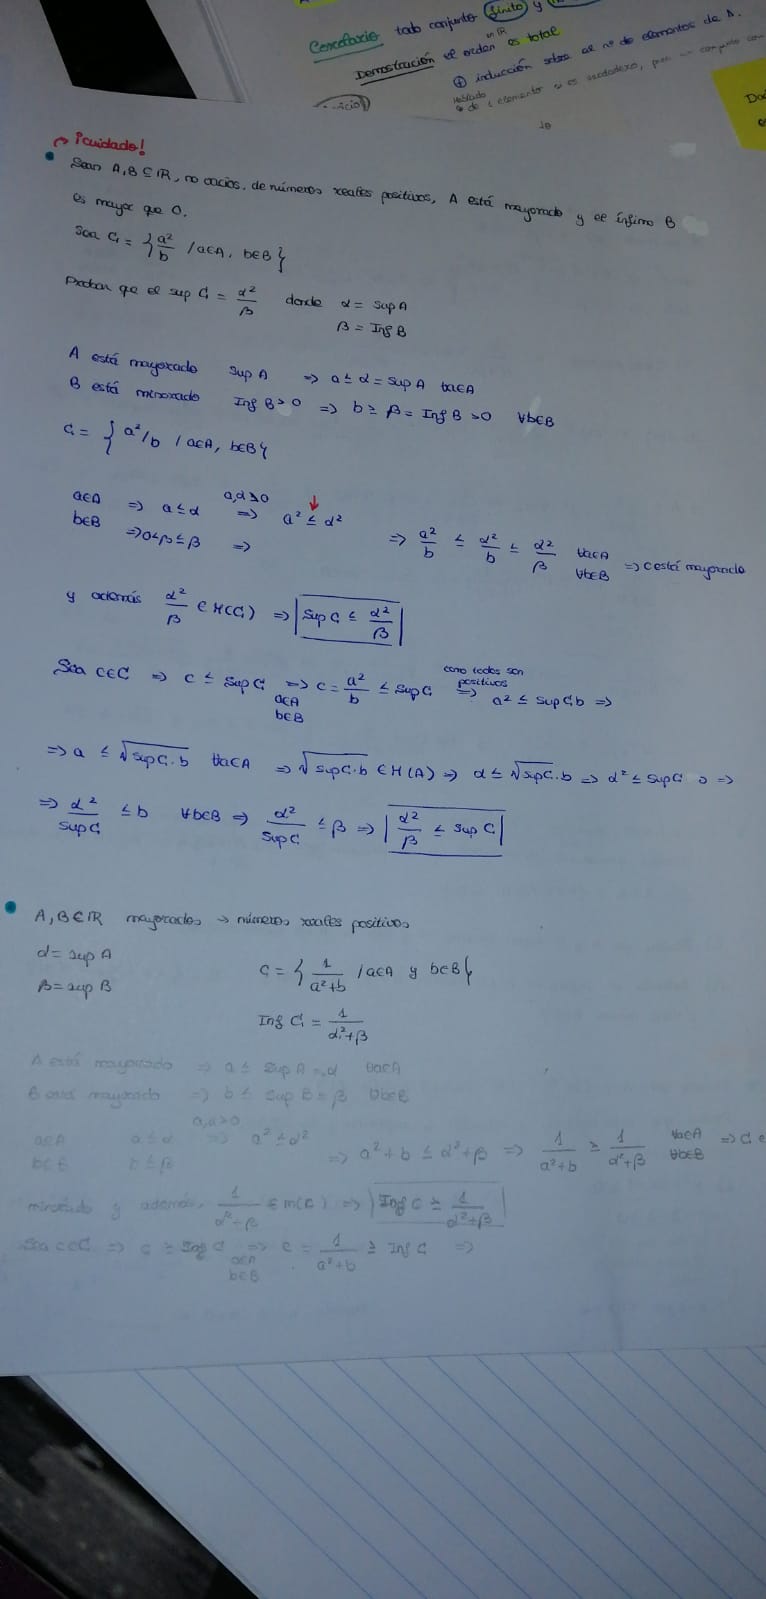 Corolario todo conjunto finito y
en IR
Demostración el orden es total
inducción sobre el nº de elementos de A.
¡cuidado!
Sean A, B ⊆ IR, no vacíos, de números reales positivos, A está mayorado y el ínfimo B
es mayor que 0.
Sea C = { a²/b / a∈A, b∈B }
Probar que el sup C = α²/β donde α = Sup A
β = Inf B
A está mayorado Sup A ⇒ a ≤ α = Sup A ∀a∈A
B está minorado Inf B > 0 ⇒ b ≥ β = Inf B > 0 ∀b∈B
C = { a²/b / a∈A, b∈B }
a∈A ⇒ a ≤ α a,α>0 ⇒ a² ≤ α²
b∈B ⇒ 0<β≤β ⇒
⇒ a²/b ≤ α²/b ≤ α²/β ∀a∈A ∀b∈B ⇒ C está mayorado
y además α²/β ∈ M(C) ⇒ Sup C ≤ α²/β
Sea c∈C ⇒ c ≤ Sup C ⇒ a∈A b∈B c = a²/b ≤ Sup C como todos son positivos ⇒ a² ≤ Sup C b ⇒
⇒ a ≤ √Sup C · b ∀a∈A ⇒ √Sup C · b ∈ M(A) ⇒ α ≤ √Sup C · b ⇒ α² ≤ Sup C b ⇒
⇒ α²/Sup C ≤ b ∀b∈B ⇒ α²/Sup C ≤ β ⇒ α²/β ≤ Sup C
A, B ∈ IR mayorados → números reales positivos
α = sup A
β = sup B
C = { 1/(a²+b) / a∈A y b∈B }
Inf C = 1/(α²+β)
A está mayorado ⇒ a ≤ Sup A = α ∀a∈A
B está mayorado ⇒ b ≤ Sup B = β ∀b∈B
a∈A a ≤ α a,α>0 ⇒ a² ≤ α²
b∈B b ≤ β
⇒ a²+b ≤ α²+β ⇒ 1/(a²+b) ≥ 1/(α²+β) ∀a∈A ∀b∈B ⇒ C e
minorado y además, 1/(α²+β) ∈ m(C) ⇒ Inf C ≥ 1/(α²+β)
Sea c∈C ⇒ c ≥ Inf C ⇒ a∈A b∈B c = 1/(a²+b) ≥ Inf C ⇒